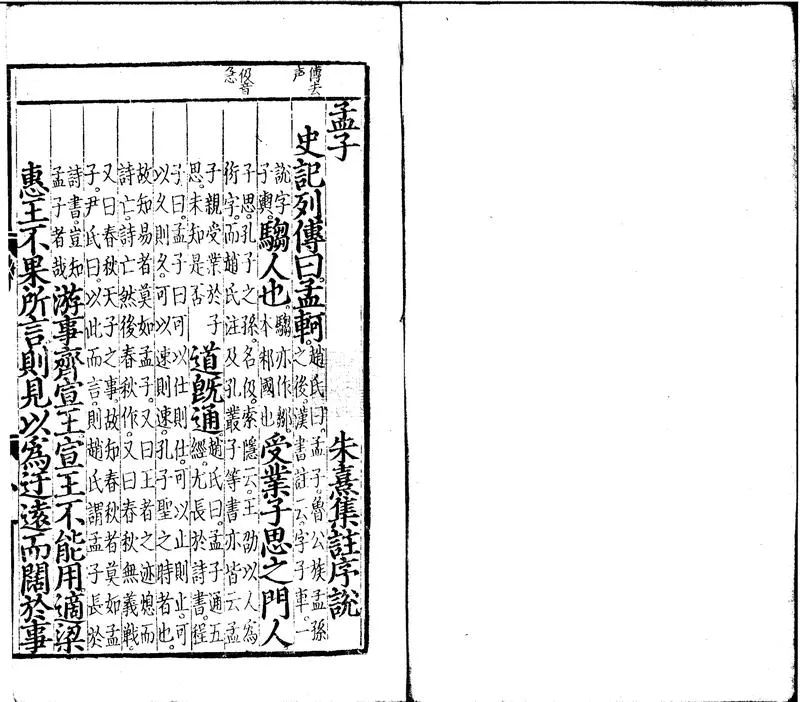 傳去声
伋音急
孟子 朱熹集註序說
史記列傳曰。孟軻。趙氏曰。孟子。魯公族孟孫之後。漢書註云。字子車。一
說字子輿。騶人也。騶亦作鄒。本邾國也 受業子思之門人
子思。孔子之孫。名伋。索隱云。王劭以人爲
衍字。而趙氏注及孔叢子等書亦皆云。孟
子親受業於子思。未知是否 道旣通 趙氏曰。孟子通五經。尤長於詩書。程
子曰。孟子曰可以仕則仕。可以止則止。可
以久則久。可以速則速。孔子聖之時者也。
故知易者莫如孟子。又曰王者之迹熄而
詩亡。詩亡然後春秋作。又曰春秋無義戰。
又曰春秋天子之事。故知春秋者莫如孟
子。尹氏曰。以此而言。則趙氏謂孟子長於
詩書。豈知孟子者哉 游事齊宣王。宣王不能用。適梁
惠王不果所言。則見以爲迂遠而闊於事